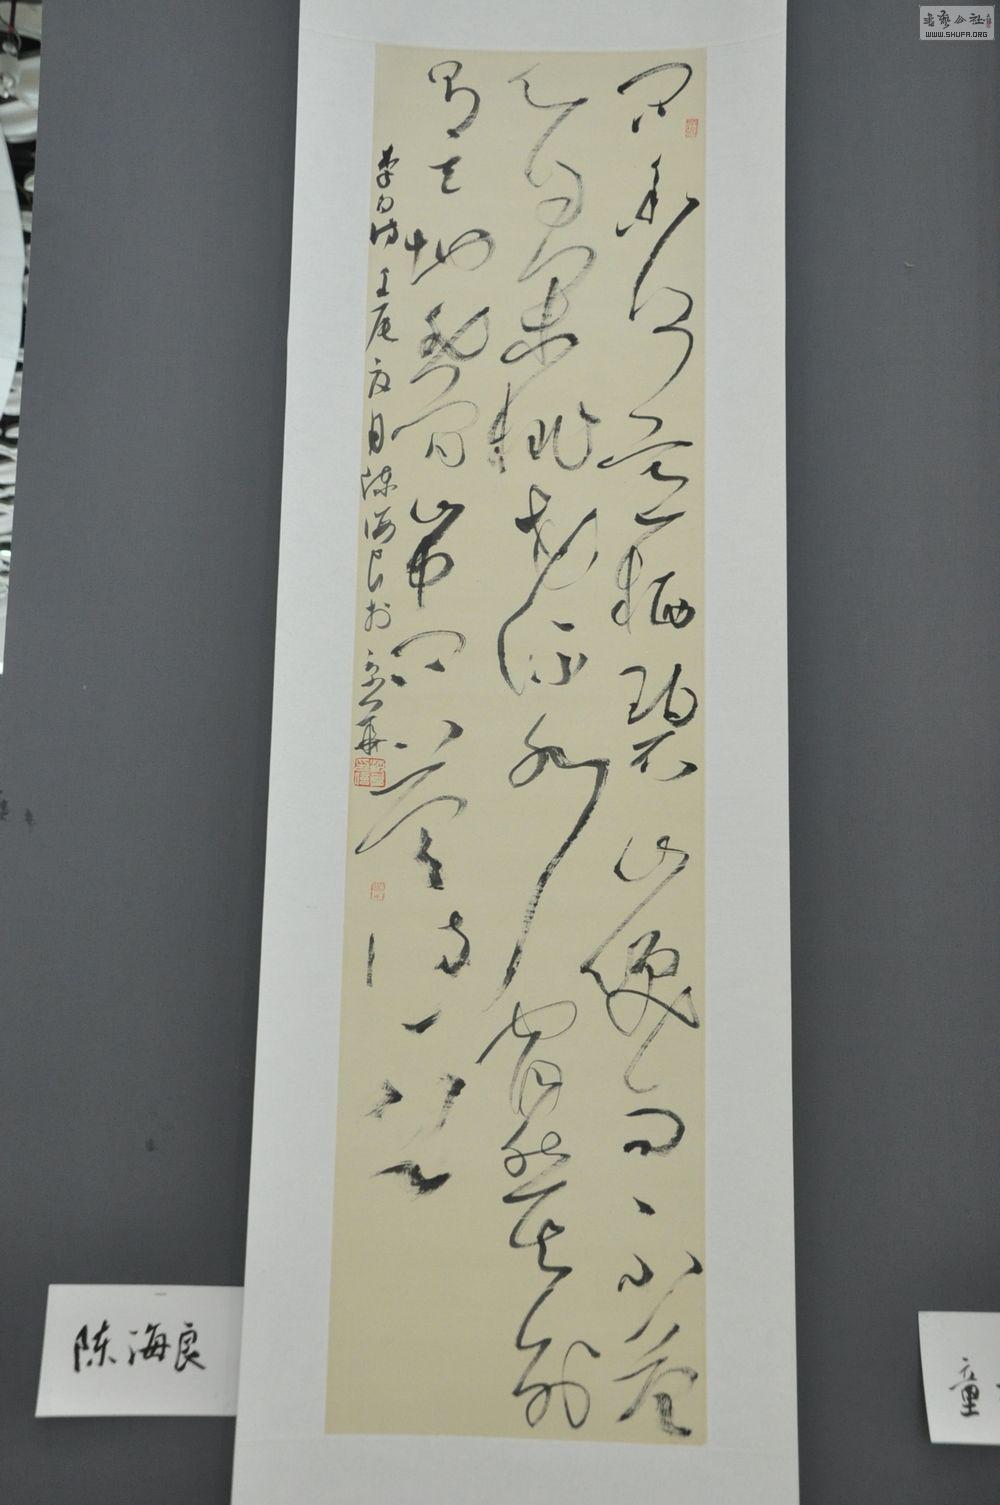 问余何意栖碧山笑而不答
心自闲桃花流水窅然去别
有天地非人间山中问答
李白诗壬辰夏月陈海良於京华
陈海良
童
书艺公社
WWW.SHUFA.ORG